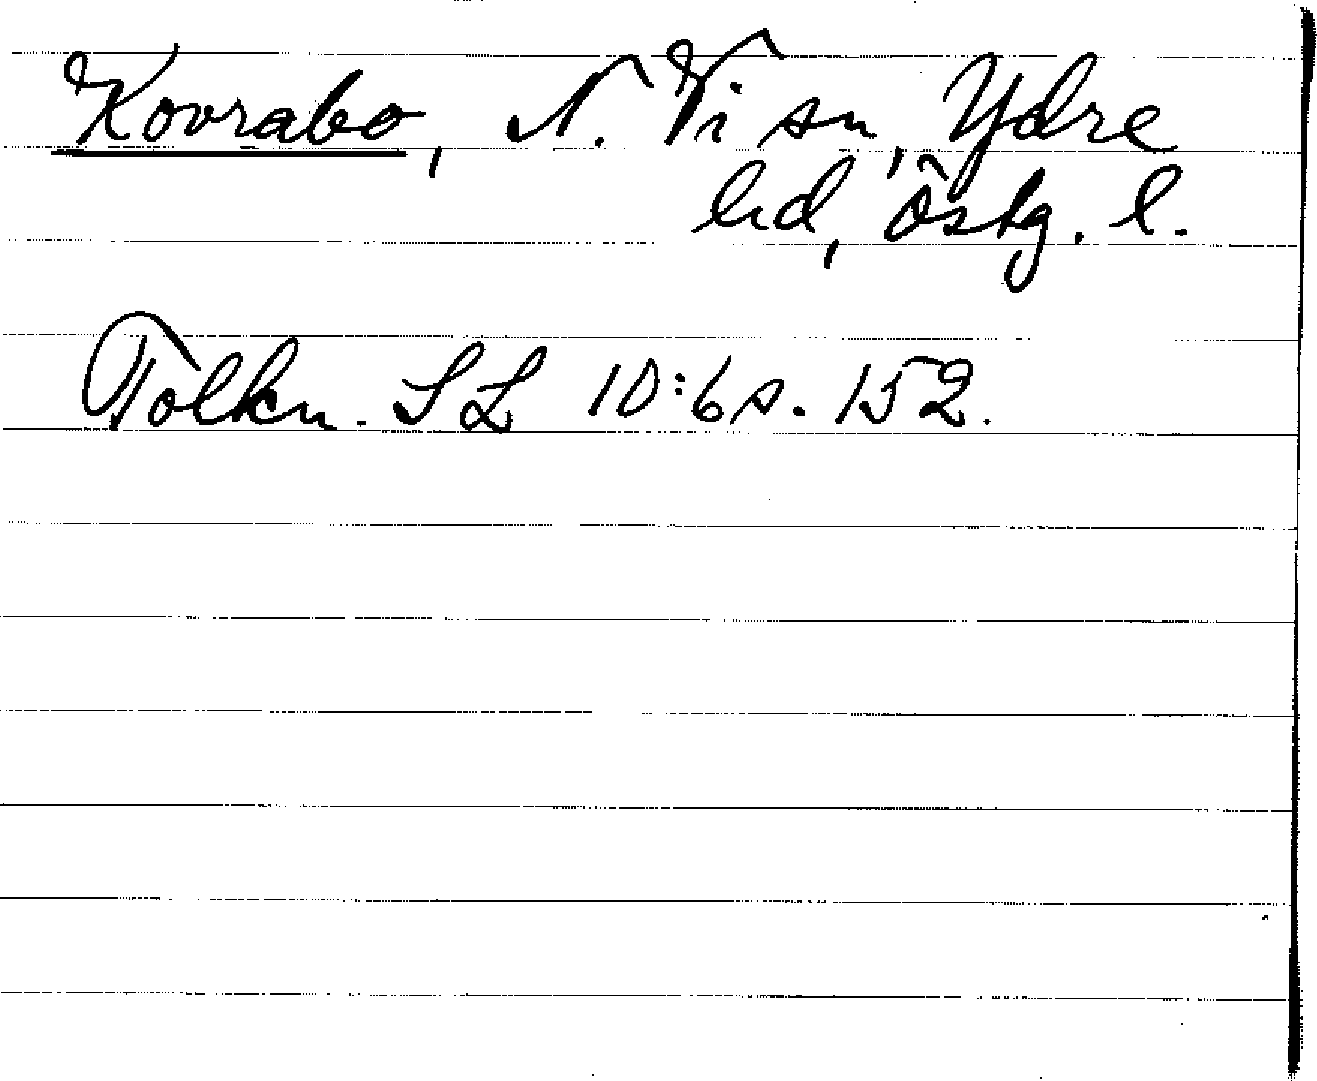 Kovrabo, N. Vi sn, Ydre
hd, Östg. l.
Tolkn. SL 10:6 s. 152.